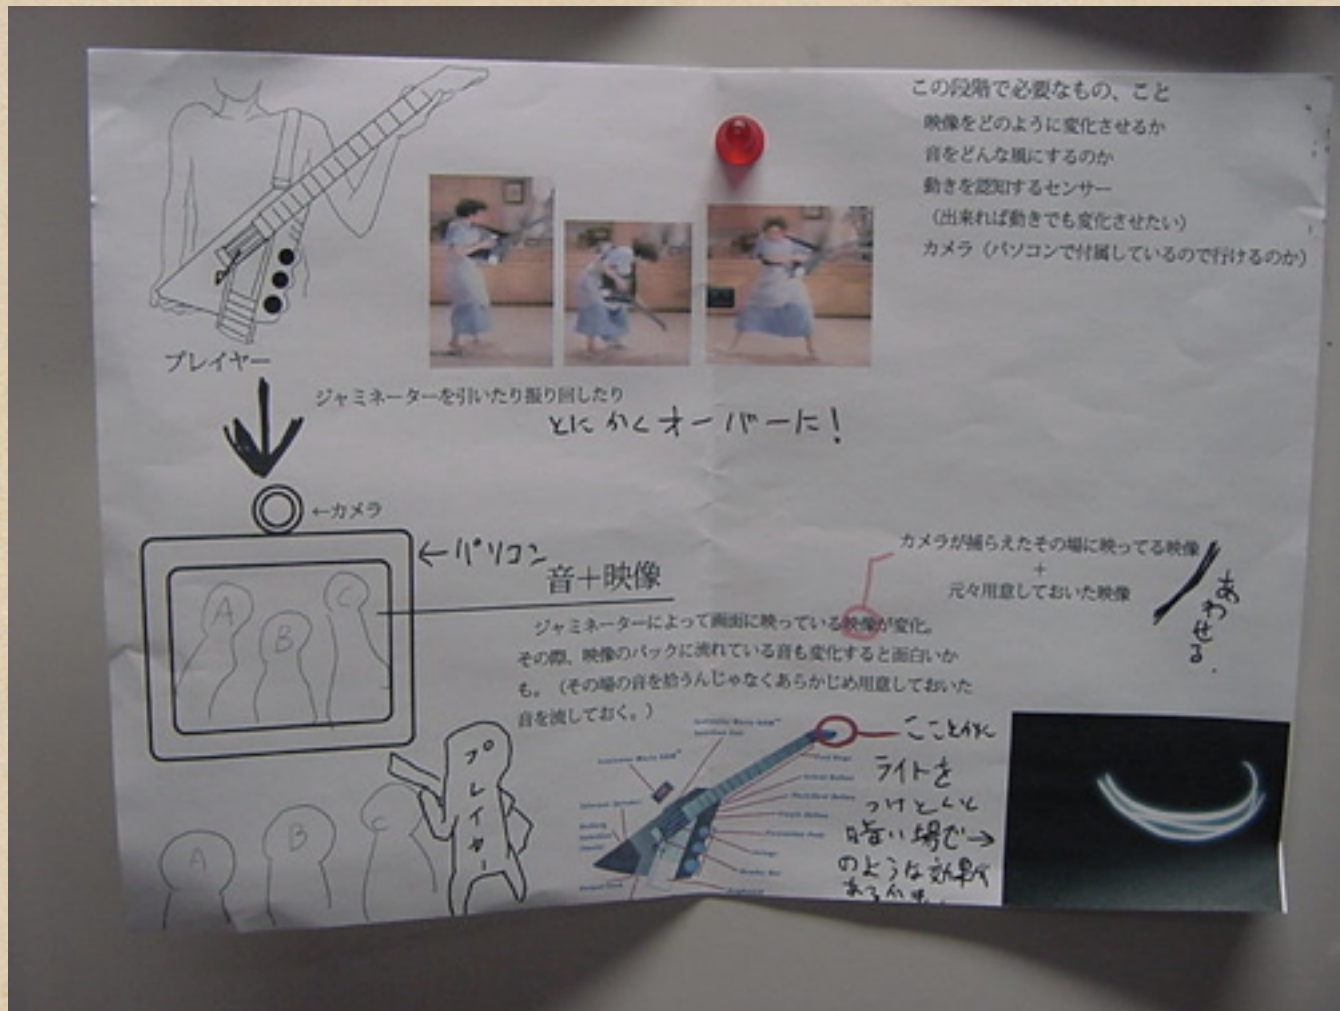 この段階で必要なもの、こと
映像をどのように変化させるか
音をどんな風にするのか
動きを認知するセンサー
(出来れば動きでも変化させたい)
カメラ(パソコンで付属しているので行けるのか)
プレイヤー
ジャミネーターを引いたり振り回したり
とにかくオーバーに!
←カメラ
←パソコン
音+映像
カメラが捕らえたその場に映ってる映像
+
元々用意しておいた映像
あわせる.
ジャミネーターによって画面に映っている映像が変化。
その際、映像のバックに流れている音も変化すると面白いか
も。(その場の音を拾うんじゃなくあらかじめ用意しておいた
音を流しておく。)
A
B
C
A
B
C
プレイヤー
ライトを
つけとくと
暗い場で→
のような効果が